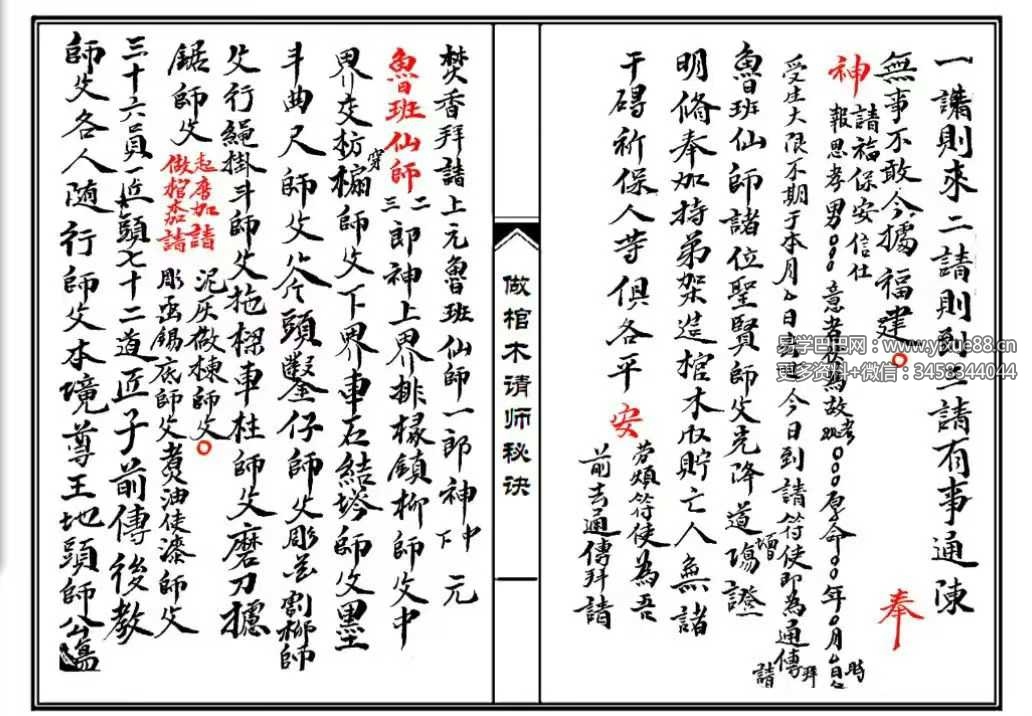 一請則來二請則到三請有事通陳
無事不敢今據福建 奉
神 請福保安信仕
報恩孝男 意者莫為故考妣 原命 年 月 日 時
受生大限不期于本月 日 今日到請符使即為通傳拜請
魯班仙師諸位聖賢師父先降道場壇證
明脩奉加持弟架造棺木收貯亡人無諸
干碍祈保人等俱各平安
勞煩符使為吾
前去通傳拜請
做棺木请师秘诀
焚香拜請上元魯班仙師一郎神中元
下
魯班仙師二
三郎神上界排椽鎮柳師父中
界交枋穿榍師父下界車石結塔師父墨
斗曲尺師父斧頭鑿仔師父彫花割柳師
父行繩掛斗師父拖樑車柱師父磨刀攄
鋸師父
起厝加請
做棺木請
泥灰 棟師父
彫 錫底師父煑油使漆師父
三十六員匠頭七十二道匠子前傳後教
師父各人随行師父本境尊王地頭師公
易学巴巴网：www.yixue88.cn
更多资料+微信：3458344044